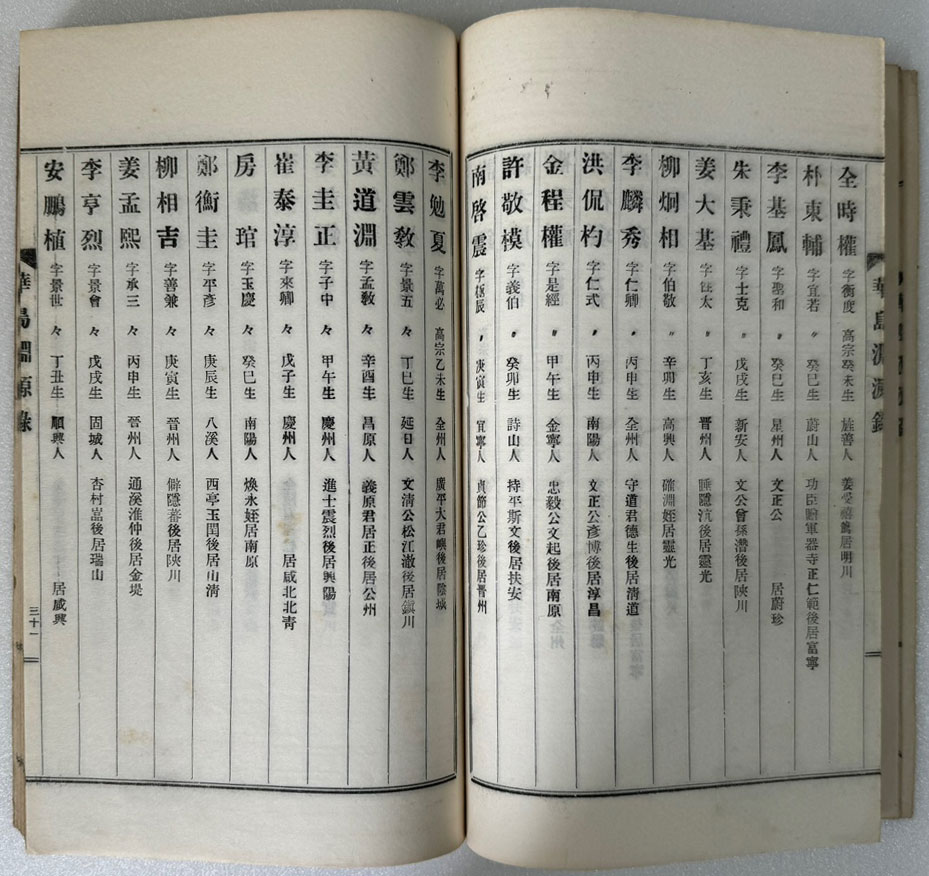 華島淵源錄
全時權 字衡度 高宗癸未生 旌善人 居明川
朴東輔 字宜若 〃 癸巳生 蔚山人 功臣贈軍器寺正仁範後居富寧
李基鳳 字聖和 〃 癸巳生 星州人 文正公 居蔚珍
朱秉禮 字士克 〃 戊戌生 新安人 文公曾孫潛後居陜川
姜大基 太 〃 丁亥生 晋州人 睡隱沆後居靈光
柳炯相 字伯敬 〃 辛卯生 高興人 確淵姪居靈光
李麟秀 字仁卿 〃 丙申生 全州人 守道君德生後居清道
洪侃杓 字仁式 〃 丙申生 南陽人 文正公彥博後居淳昌
金程權 字是經 〃 甲午生 金寧人 忠毅公文起後居南原
許敬模 字義伯 〃 癸卯生 詩山人 持平斯文後居扶安
南啓震 辰 〃 庚寅生 宜寧人 貞節公乙珍後居晋州
李勉夏 字萬必 高宗乙未生 全州人 廣平大君璵後居陰城
鄭雲敎 字景五 々 丁巳生 延日人 文清公松江澈後居鎭川
黃道淵 字孟敎 々 辛酉生 昌原人 義原君居正後居公州
李圭正 字子中 々 甲午生 慶州人 進士震烈後居興陽
崔泰淳 字來卿 々 戊子生 慶州人 居咸北北靑
房琯 字玉慶 々 癸巳生 南陽人 煥永姪居南原
鄭衡圭 字平彥 々 庚辰生 八溪人 西亭玉閏後居山清
柳相吉 字善兼 々 庚寅生 晉州人 僻隱蕃後居陜川
姜孟熙 字承三 々 丙申生 晉州人 通溪淮仲後居金堤
李亨烈 字景會 々 戊戌生 固城人 杏村嵓後居瑞山
安鵬植 字景世 々 丁丑生 順興人 居咸興
華島淵源錄
三十一